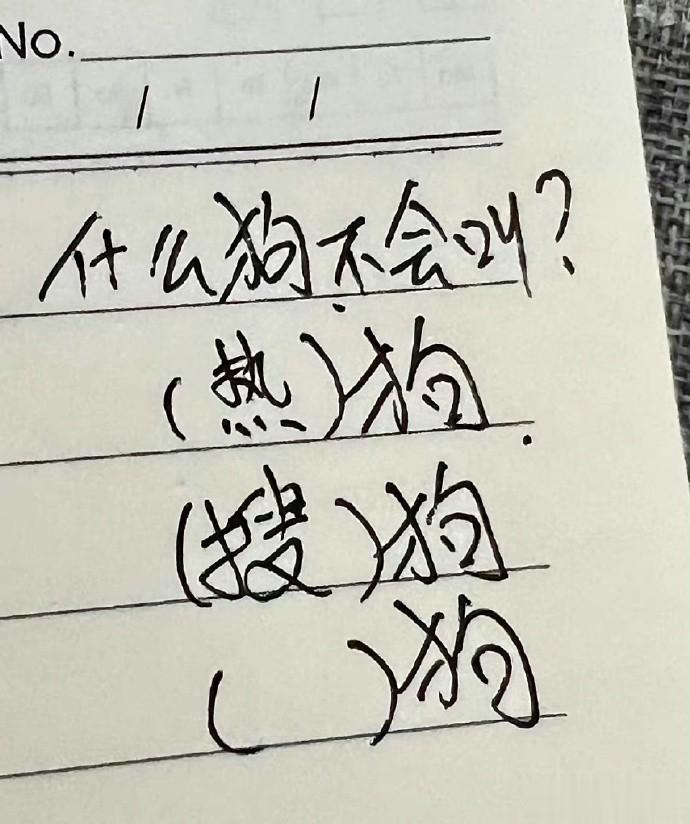 No.
/ /
什么狗不会叫?
(热)狗
(搜)狗
( )狗